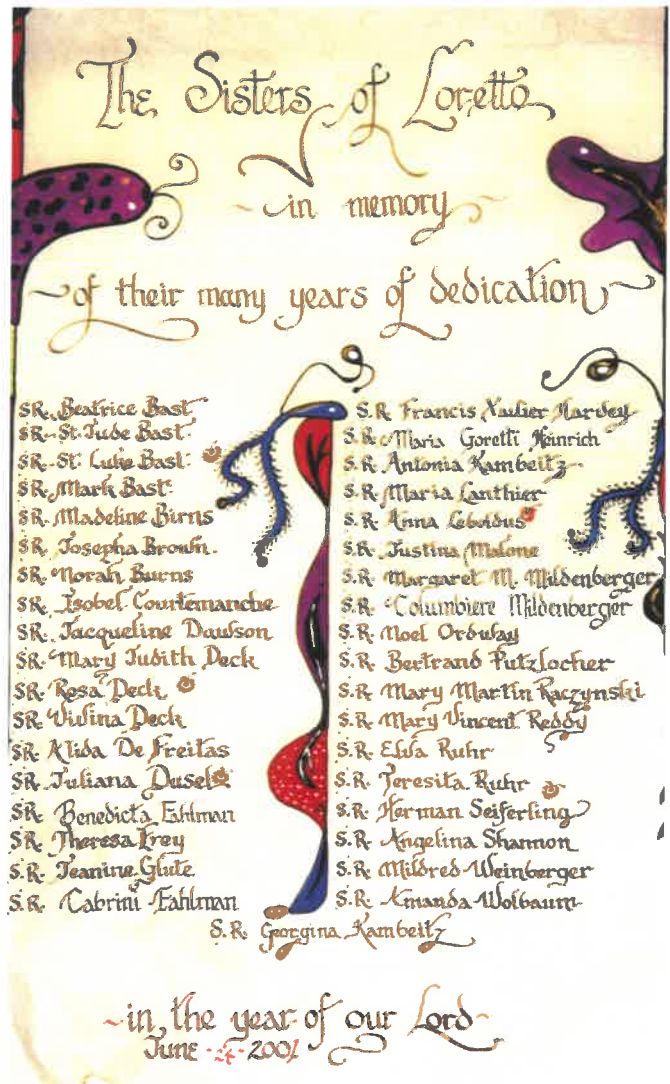 The Sisters of Loretto
in memory
of their many years of dedication
SR. Beatrice Bast
SR. St. Jude Bast
SR. St. Luke Bast
SR. Mark Bast
SR. Madeline Birns
SR. Josepha Brown
SR. Norah Burns
SR. Isobel Courtemanche
SR. Jacqueline Dawson
SR. Mary Judith Deck
SR. Rosa Deck
SR. Vivina Deck
SR. Alida De Freitas
SR. Juliana Dusel
SR. Benedicta Fahlman
SR. Theresa Frey
S.R. Jeanine Glute
S.R. Cabrini Fahlman
S.R. Francis Xavier Hardey
S.R. Maria Goretti Heinrich
S.R. Antonia Kambeitz
S.R. Maria Lanthier
S.R. Anna Leboldus
S.R. Justina Malone
S.R. Margaret M. Mildenberger
S.R. Columbiere Mildenberger
S.R. Noel Ordway
S.R. Bertrand Putzlocher
S.R. Mary Martin Raczynski
S.R. Mary Vincent Reddy
S.R. Ruhr
S.R. Teresita Ruhr
S.R. Herman Seiferling
S.R. Angelina Shannon
S.R. Mildred Weinberger
S.R. Amanda Wolbaum
S.R. Georgina Kambeitz
in the year of our Lord
June 2001